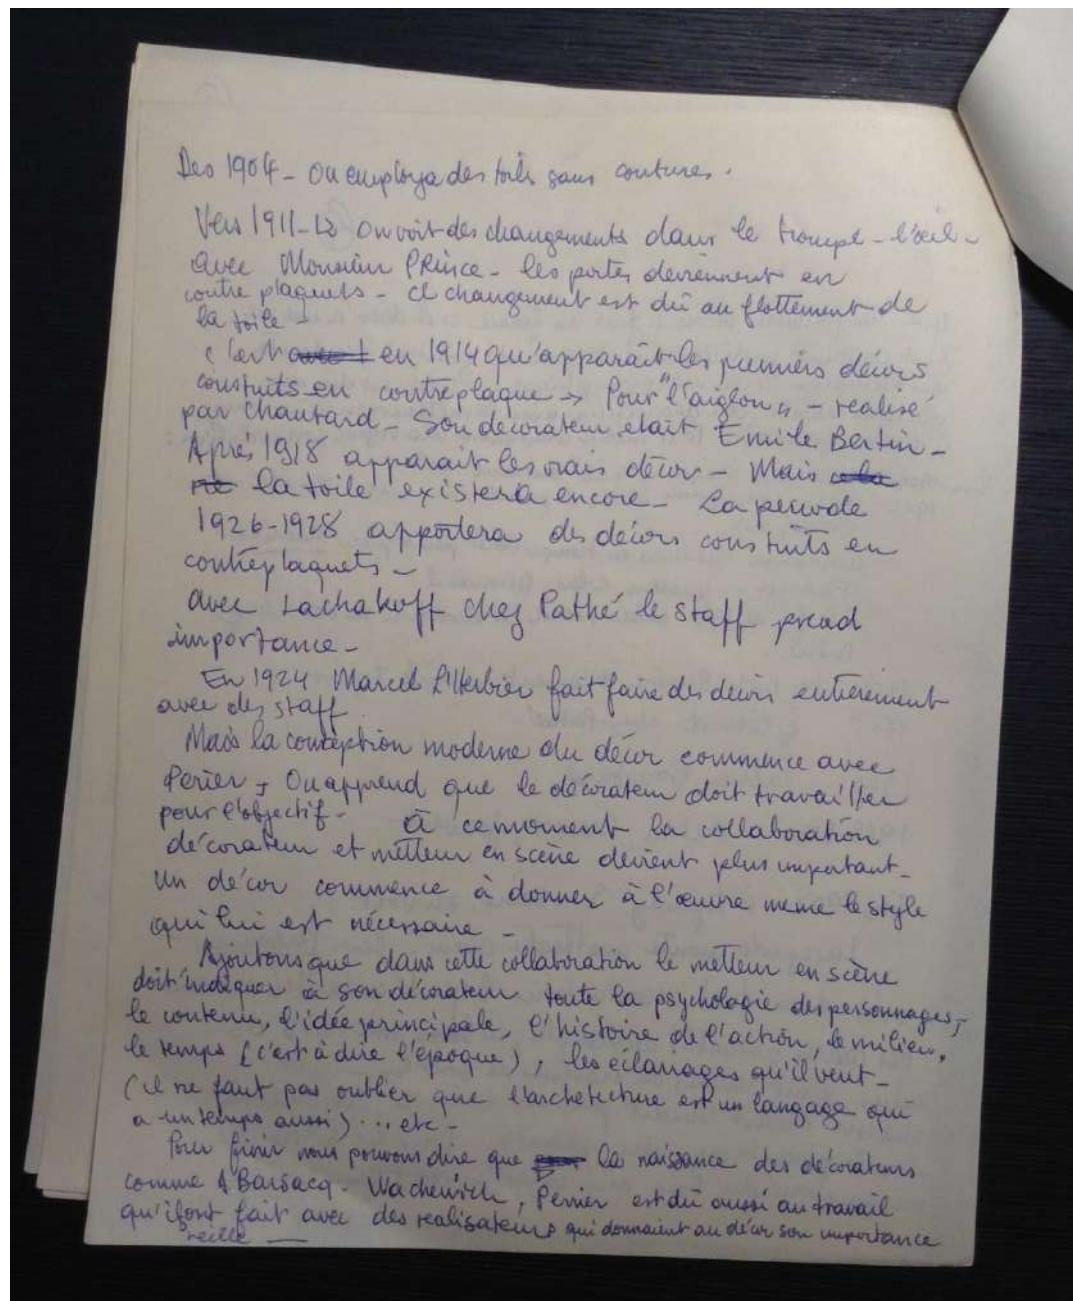 Des 1904 - On employa des toiles sans coutures.
Vers 1911-12 on voit des changements dans le trompe-l'œil -
avec Monsieur PRince - les portes deviennent en
contre plaquets - ce changement est dû au flottement de
la toile -
c'est en 1914 qu'apparait les premiers décors
construits en contreplaque -> Pour "l'aiglon" - realisé
par chautard - Son decorateur etait Emile Bertin -
Aprés 1918 apparait les vrais décor - Mais
la toile existera encore - La periode
1926-1928 apportera des décors construits en
contreplaquets -
avec Lachakoff chez Pathé le staff prend
importance -
En 1924 Marcel L'Herbier fait faire des decors entierement
avec des staff
Mais la conception moderne du décor commence avec
Perier - On apprend que le décorateur doit travailler
pour l'objectif - à ce moment la collaboration
décorateur et metteur en scène devient plus important -
Un décor commence à donner à l'œuvre meme le style
qui lui est nécessaire -
Ajoutons que dans cette collaboration le metteur en scène
doit indiquer à son décorateur toute la psychologie des personnages,
le contenu, l'idée principale, l'histoire de l'action, le milieu,
le temps (c'est à dire l'époque), les éclairages qu'il veut -
(il ne faut pas oublier que l'archetecture est un langage qui
a un temps aussi) ... etc -
Pour finir nous pouvons dire que la naissance des décorateurs
comme A Barsacq - Wachewich, Perrier est dû aussi au travail
qu'ils ont fait avec des realisateurs qui donnaient au décor son importance
réelle -